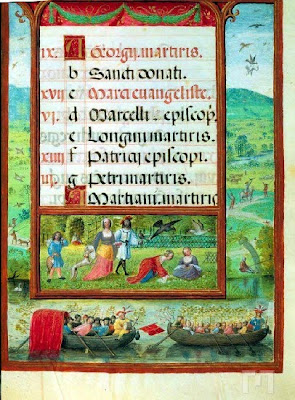 ix A Georgij martiris.
b Sancti donati.
xvij c Marci euangeliste.
vj d Marcelli episcop
e Longini martiris.
xiiij f Patricij episcopi.
iij g Petri martiris.
A Martiani martiris